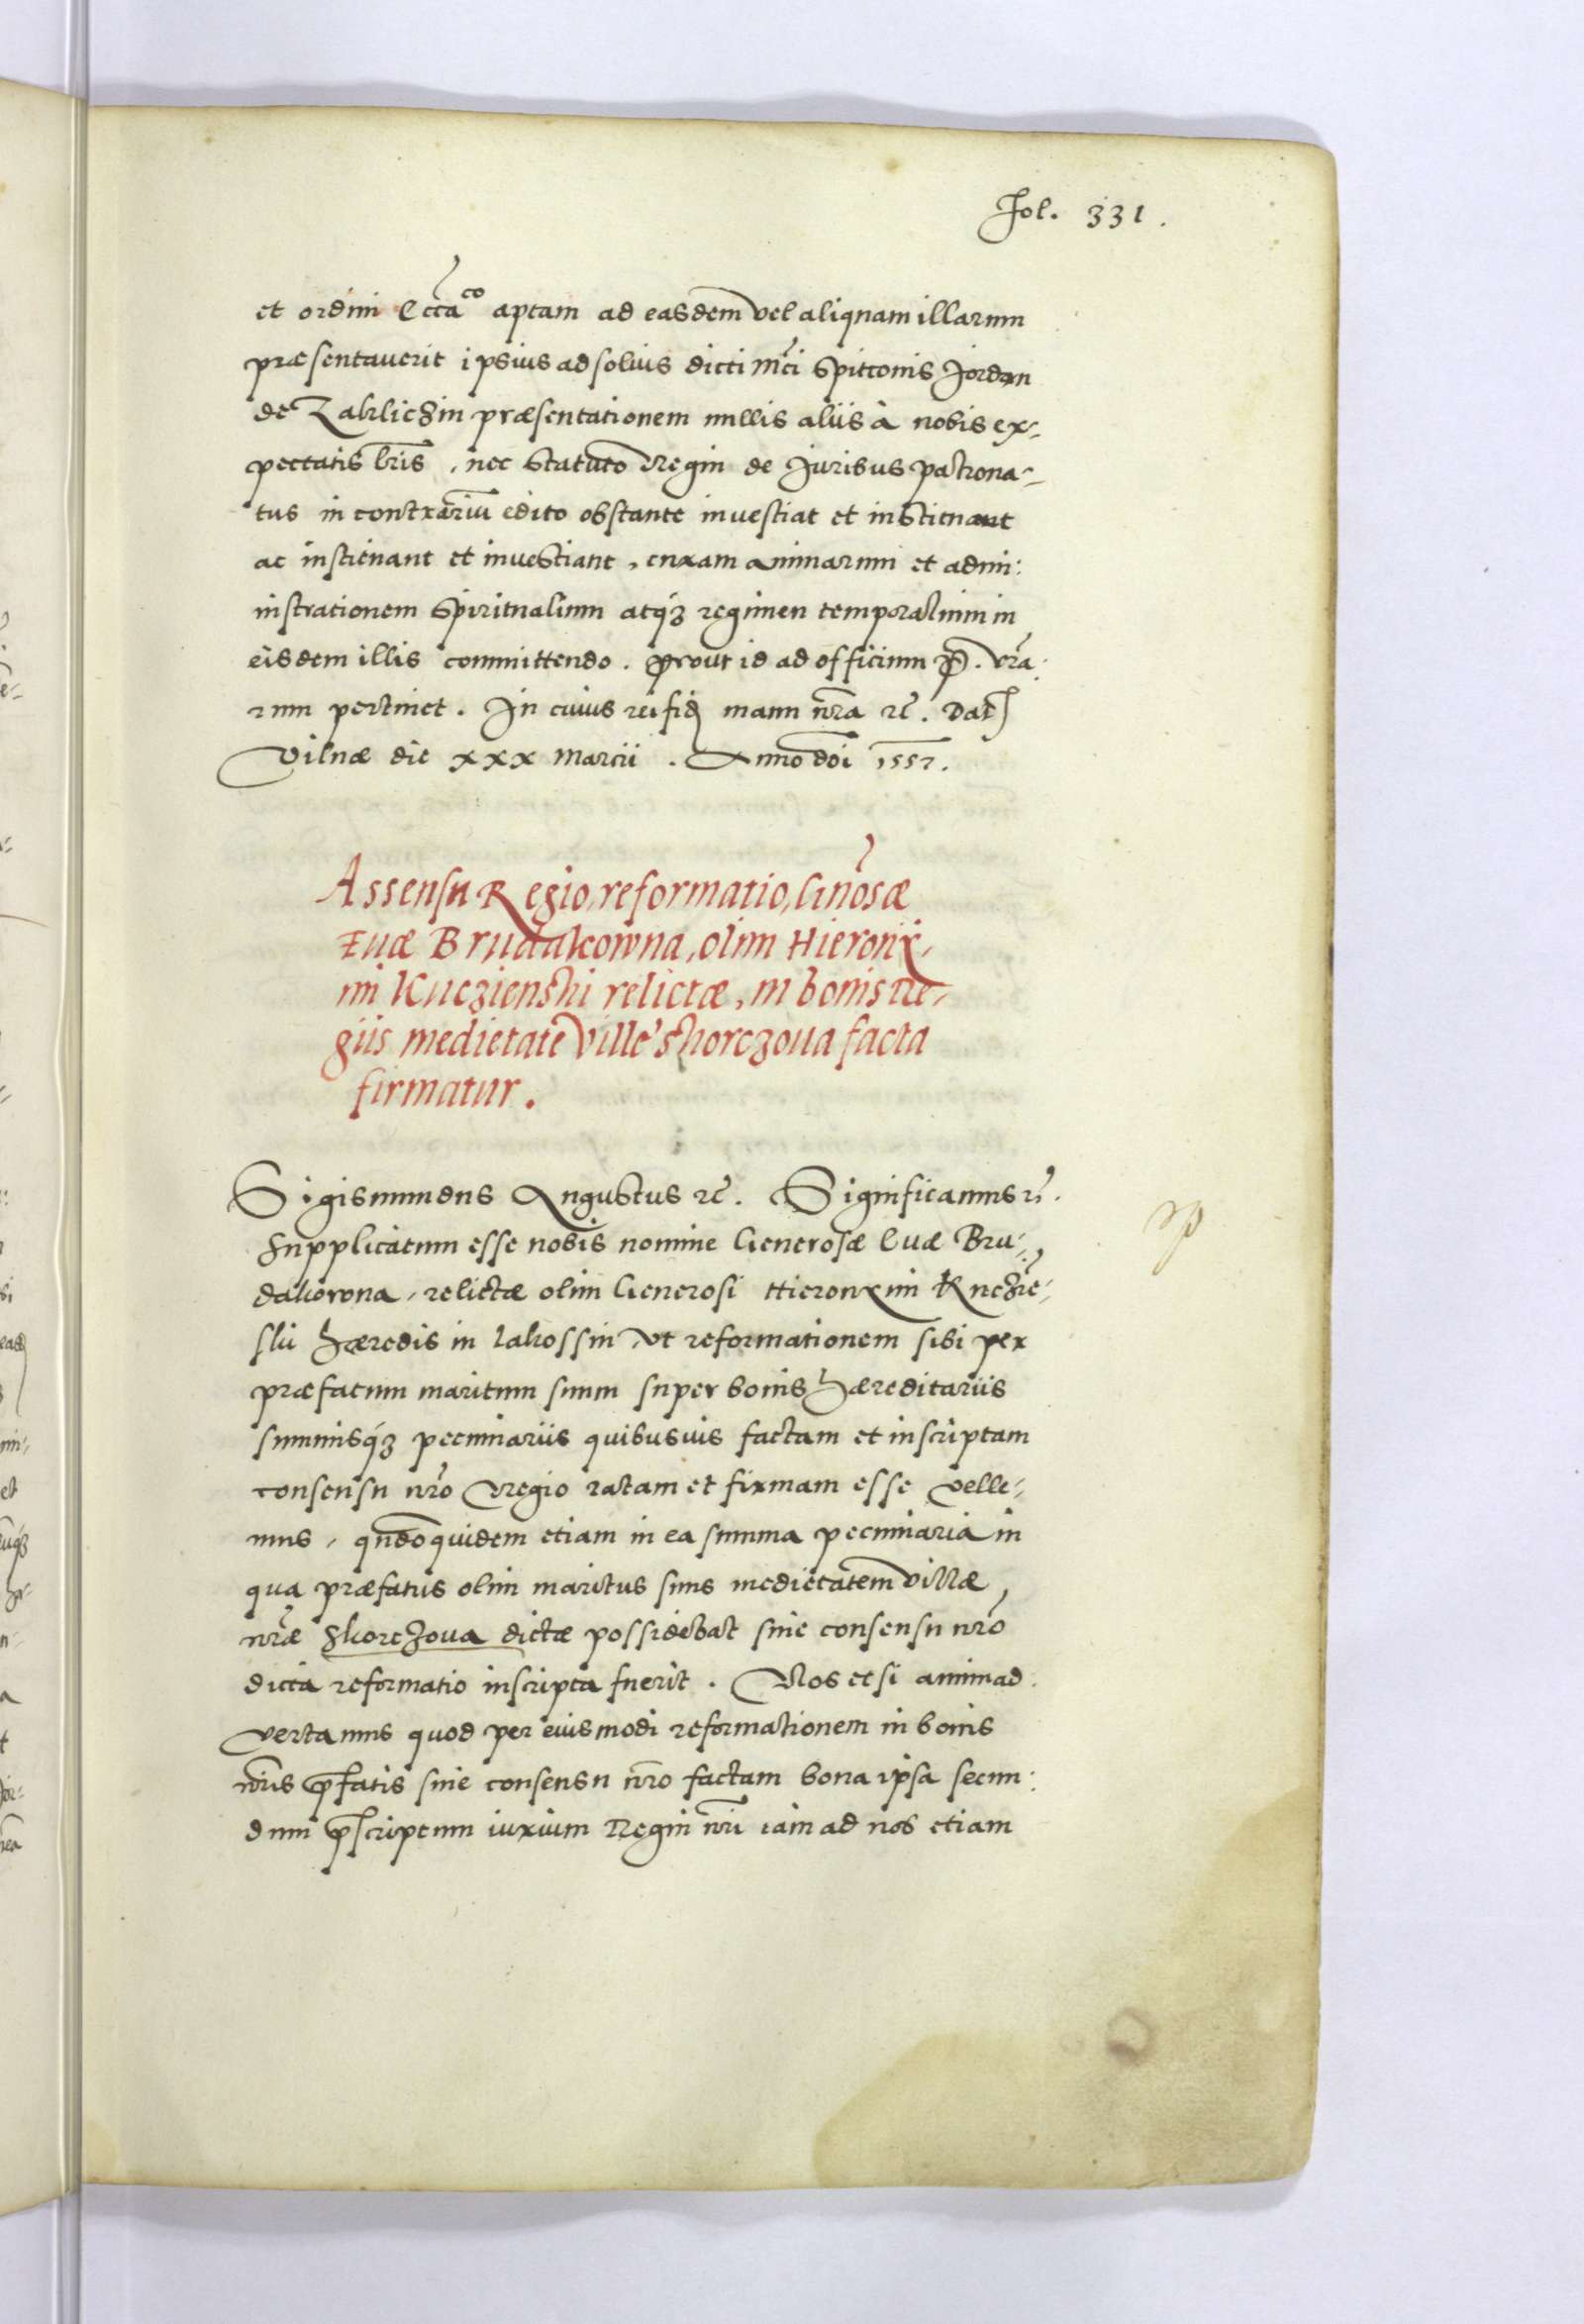 Fol. 331.
et ordini Eccãco aptam ad easdem vel aliquam illarum
præsentauerit ipsius ad solius dicti Mci Spitconis Jordan
de Zakliczin præsentationem nullis aliis à nobis ex-
pectatis lris, nec statuto Regni de Juribus patrona-
tus in contrariũ edito obstante inuestiat et instituant
ac instituant et inuestiant, curam animarum et admi:
nistrationem spiritualium atq3 regimen temporalium in
eisdem illis committendo. Prout id ad officium P. vra:
rum pertinet. In cuius rei fid manu nra rc. Dat
Vilnæ die xxx Marcii. Anno doi 1557.
Assensu Regio, reformatio, Gnosæ
Euæ Brudakowna, olim Hierony-
mi Kuczienski relictæ, in bonis Re-
giis medietate Ville Skorczoua facta
firmatur.
Sigismundus Augustus rc. Significamus rc.
Supplicatum esse nobis nomine Generosæ Euæ Bru-
dakowna, relictæ olim Generosi Hieronymi Kuczie-
ski hæredis in Lakossin vt reformationem sibi per
præfatum maritum suum super bonis hæreditariis
summisq3 pecuniariis quibusuis factam et inscriptam
consensu nro Regio ratam et firmam esse velle-
mus, qndoquidem etiam in ea summa pecuniaria in
qua præfatus olim maritus suus medietatem villæ
nræ Skorczoua dictæ possidebat sine consensu nro
dicta reformatio inscripta fuerit. Nos etsi animad:
vertamus quod per eiusmodi reformationem in bonis
nris pfatis sine consensu nro factam bona ipsa secun:
dum pscriptum iurium Regni nri iam ad nos etiam